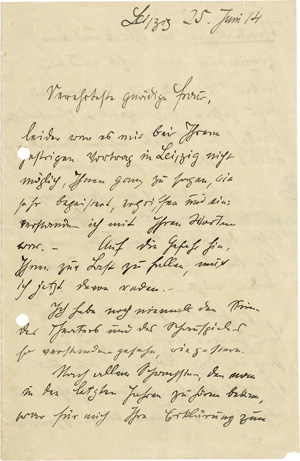 Leipzig 25. Juni 14
Verehrteste gnädige Frau,
leider war es mir bei Ihrem
gestrigen Vortrag in Leipzig nicht
möglich, Ihnen ganz zu sagen, wie
sehr begeistert, ergriffen und ein-
verstanden ich mit Ihren Worten
war. – Auf die Gefahr hin,
Ihnen zur Last zu fallen, muß
ich jetzt davon reden. –
Ich habe noch niemals den Sinn
des Theaters und des Schauspielers
so verstanden gesehen, wie gestern.
Nach allem den man
in den letzten Jahren zu hören bekam,
war für mich Ihre Erklärung zum